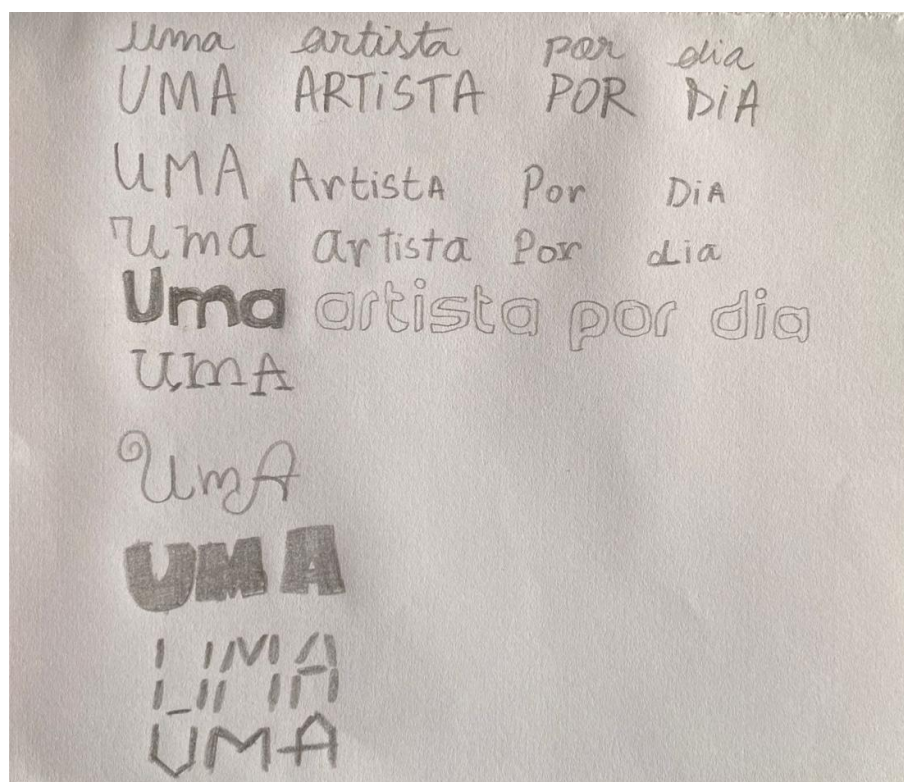 uma artista por dia
UMA ARTiSTA POR DiA
UMA ArtistA Por DiA
Uma artista Por dia
Uma artista por dia
UmA
UmA
UMA
UMA
UMA